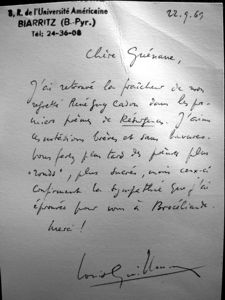 8, R. de l'Université Américaine
BIARRITZ (B.-Pyr.)
Tél: 24-36-08
22.9.69
Chère Guénane,
J'ai retrouvé la fraîcheur de nos
regrettés René Guy Cadou dans les pre-
miers poèmes de Résurgences. J'aime
ces notations brèves et sans bavures.
Vous ferez plus tard des poèmes plus
"ronds", plus sucrés, mais ceux-ci
confirment la sympathie que j'ai
éprouvée pour vous à Brocéliande.
Merci !
Louis Guillaume